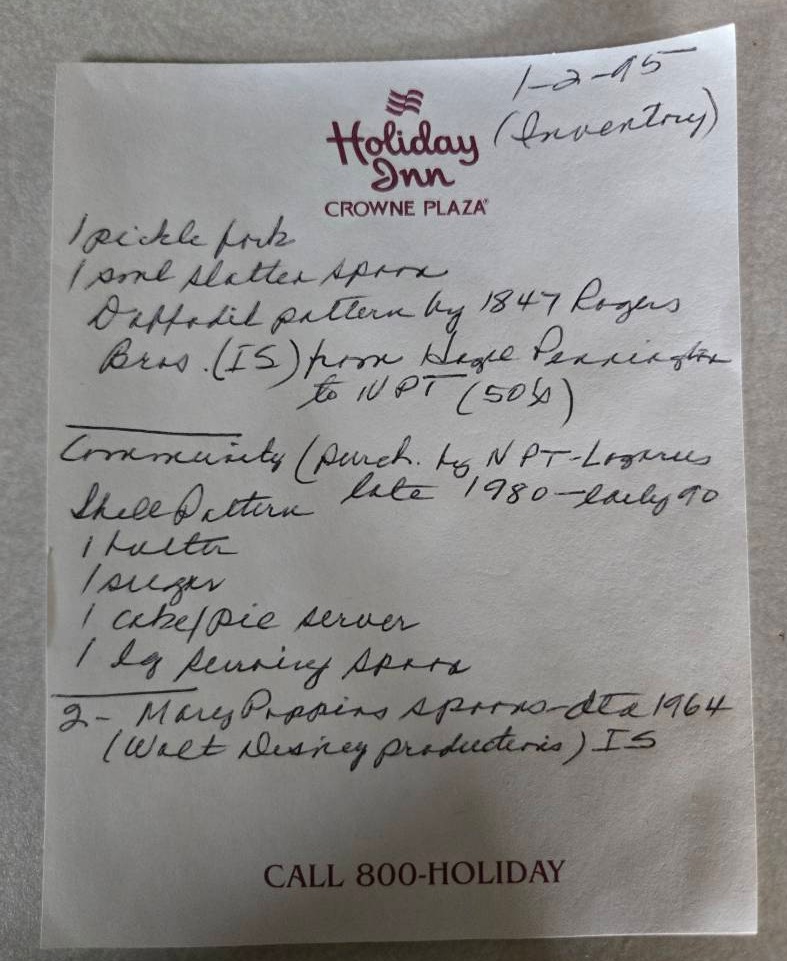 1-2-95
(Inventory)
Holiday
Inn
CROWNE PLAZA®
1 pickle fork
1 sml platter spoon
Daffodil pattern by 1847 Rogers
Bros. (IS) from Hazel Pennington
to NPT (50's)
Community (purch. by NPT-Lazarus
Shell Pattern late 1980-early 90
1 butter
1 sugar
1 cake/pie server
1 lg serving spoon
2- Mary Poppins spoons- 1964
(Walt Disney productions) IS
CALL 800-HOLIDAY